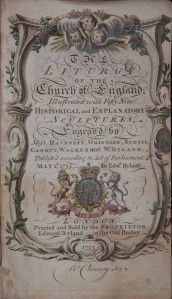 THE
LITURGY
OF THE
Church of England;
Illustrated with Fifty Nine
HISTORICAL and EXPLANATORY
SCULPTURES,
Engrav'd by
Mess. RAVENET, GRIGNION, SCOTIN,
CANOT, WALKER and W. RYLAND,
Publish'd according to Act of Parliament,
MAY 1755 by Edwd. Ryland
LONDON
Printed and Sold by the PROPRIETOR
Edward Ryland in the Old Bailey
1755